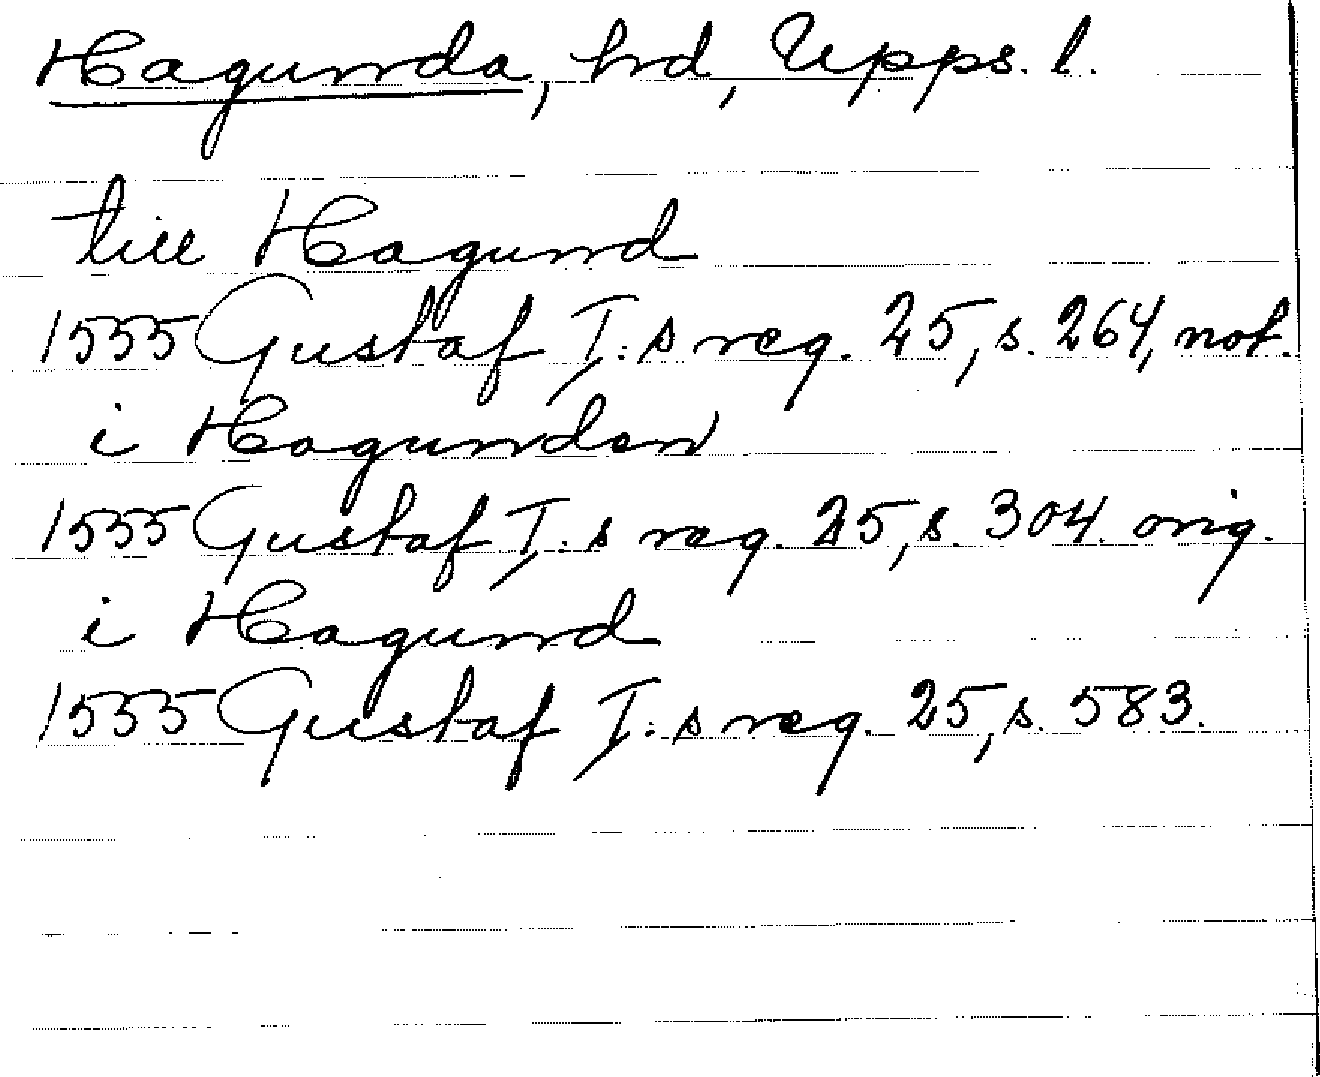 Hagunda, hd, Upps. l.
till Hagund
1555 Gustaf I:s reg. 25, s. 264, not.
i Hagunden
1555 Gustaf I:s reg. 25, s. 304. orig.
i Hagund
1555 Gustaf I:s reg. 25, s. 583.